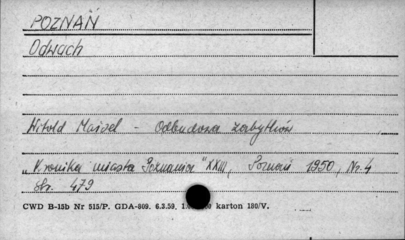 POZNAŃ
Odwach
Witold Maisel - Odbudowa zabytków
"Kronika miasta Poznania" XXIII, Poznań 1950, Nr. 4
Str. 479
CWD B-15b Nr 515/P. GDA-809. 6.3.59. karton 180/V.